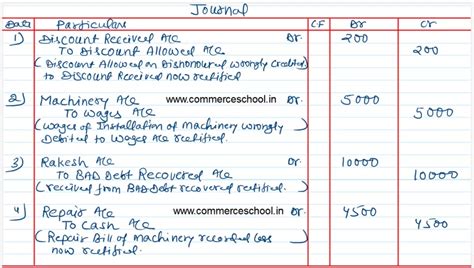 Journal
Date Particulars CF Dr Cr
1) Discount Received A/c Dr. 200
To Discount Allowed A/c 200
(Discount Allowed on Dishonoured wrongly Credited
to Discount Received now rectified
2) Machinery A/c www.commerceschool.in Dr. 5000
To Wages A/c 5000
(Wages of Installation of Machinery wrongly
Debited to Wages A/c rectified.
3) Rakesh Dr. 10000
To BAD Debt Recovered A/c 10000
(received from BAD Debt recovered rectified.
4) Repair A/c www.commerceschool.in Dr. 4500
To Cash A/c 4500
(Repair Bill of Machinery recorded less
now rectified.